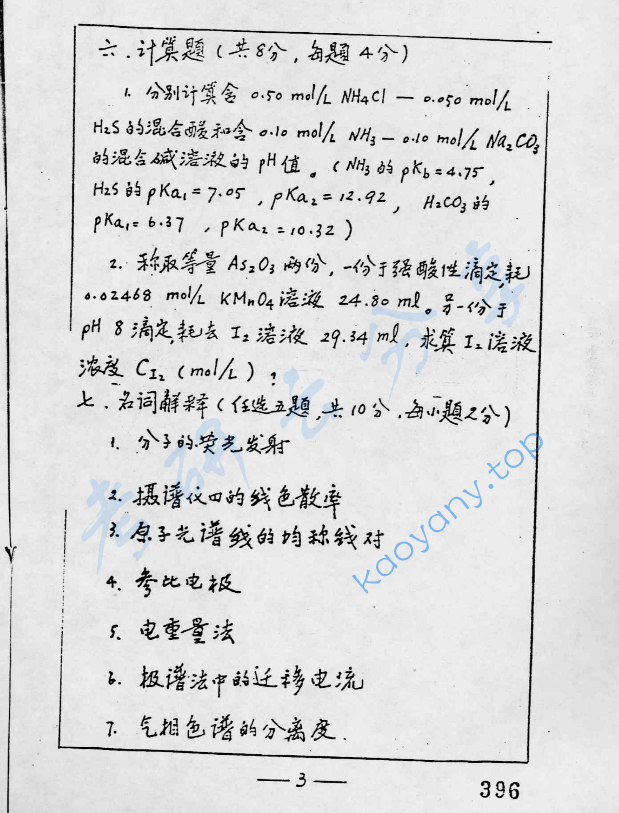 六.计算题(共8分,每题4分)
1. 分别计算含 0.50 mol/L NH4Cl — 0.050 mol/L
H2S的混合酸和含0.10 mol/L NH3 — 0.10 mol/L Na2CO3
的混合碱溶液的pH值。(NH3的pKb=4.75,
H2S的pKa1=7.05, pKa2=12.92, H2CO3的
pKa1=6.37, pKa2=10.32)
2. 称取等量As2O3两份,一份于强酸性滴定,耗
0.02468 mol/L KMnO4溶液 24.80 ml。另一份于
pH 8滴定,耗去I2溶液 29.34 ml. 求算I2溶液
浓度 CI2 (mol/L)?
七.名词解释(任选五题,共10分,每小题2分)
1. 分子的荧光发射
2. 摄谱仪的线色散率
3. 原子光谱线的均称线对
4. 参比电极
5. 电重量法
6. 极谱法中的迁移电流
7. 气相色谱的分离度.
— 3 —
396
考研云分享
kaoyany.top